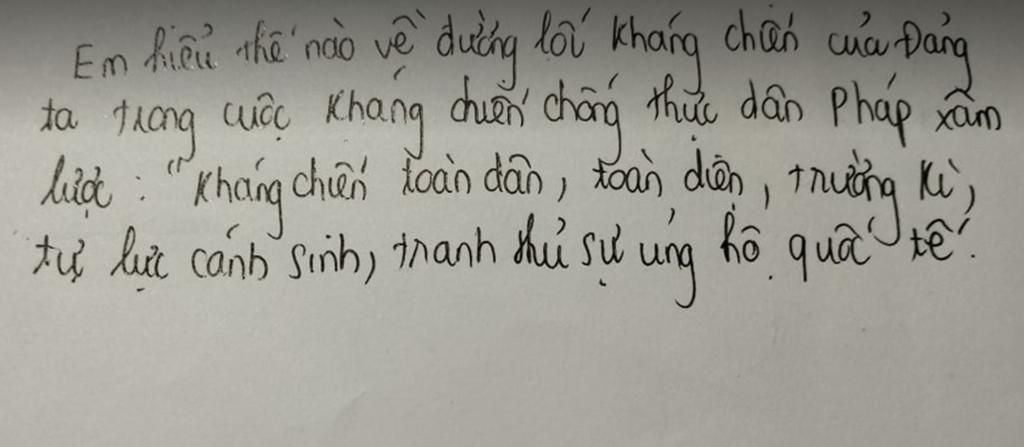 Em hiểu thế nào về đường lối kháng chiến của Đảng
ta trong cuộc kháng chiến chống thực dân Pháp xâm
lược: "Kháng chiến toàn dân, toàn diện, trường kì,
tự lực cánh sinh, tranh thủ sự ủng hộ quốc tế.